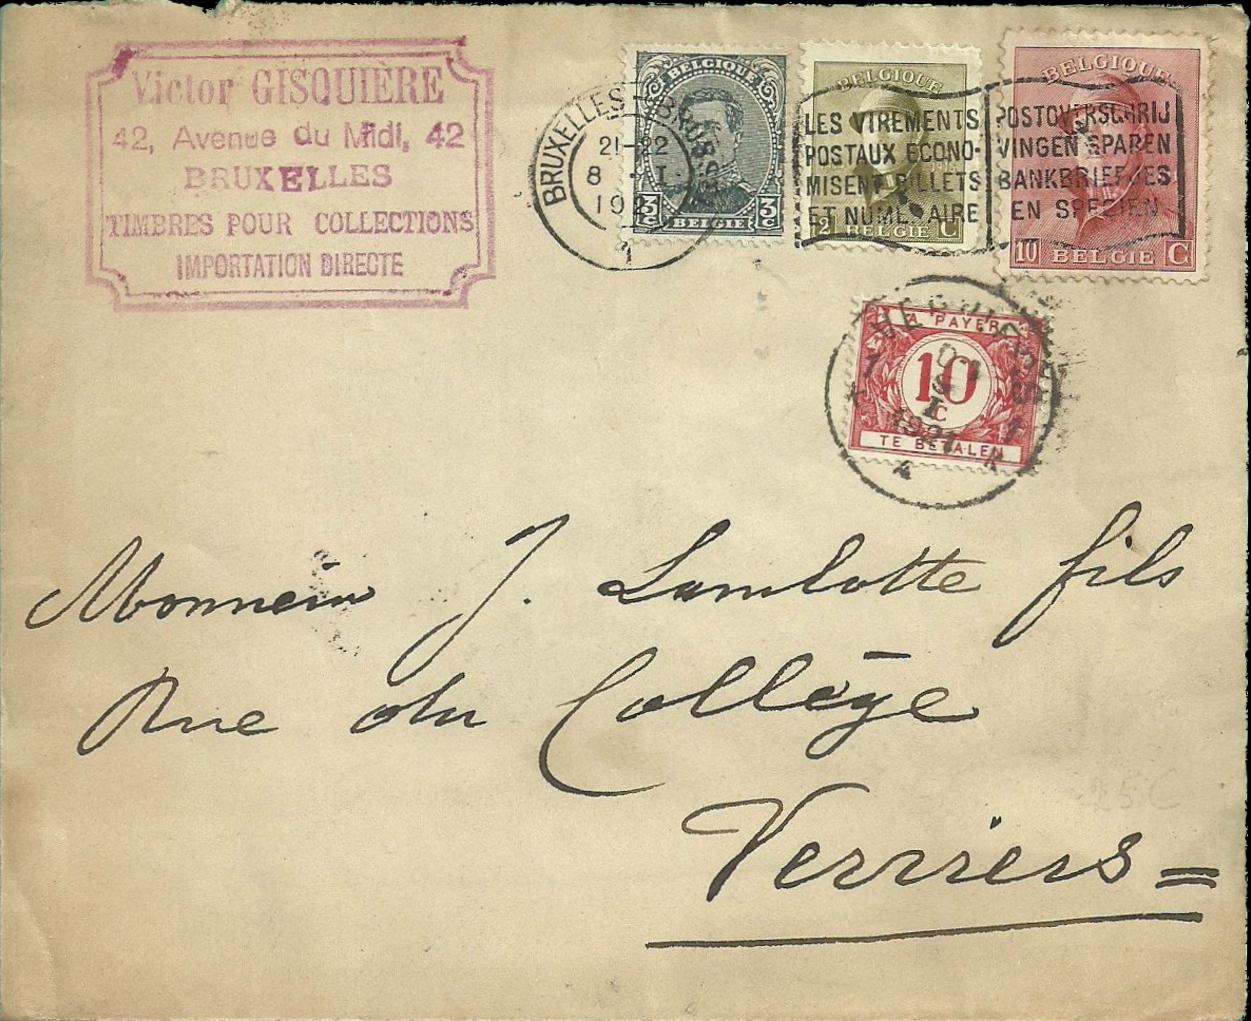 Victor GISQUIÈRE
42, Avenue du Midi, 42
BRUXELLES
TIMBRES POUR COLLECTIONS
IMPORTATION DIRECTE
BELGIQUE
3C BELGIE 3C
BRUXELLES - BRUSSEL
21-22
8 · I ·
192
1
BELGIQUE
2 BELGIE C
BELGIQUE
10 BELGIE C
LES VIREMENTS
POSTAUX ECONO-
MISENT BILLETS
ET NUMERAIRE
POSTOVERSCHRIJ
VINGEN SPAREN
BANKBRIEFJES
EN SPECIEN
A PAYER
10
C
TE BETALEN
9
I
1921
Monsieur J. Lamlotte fils
Rue du Collège
Verviers =
25 C